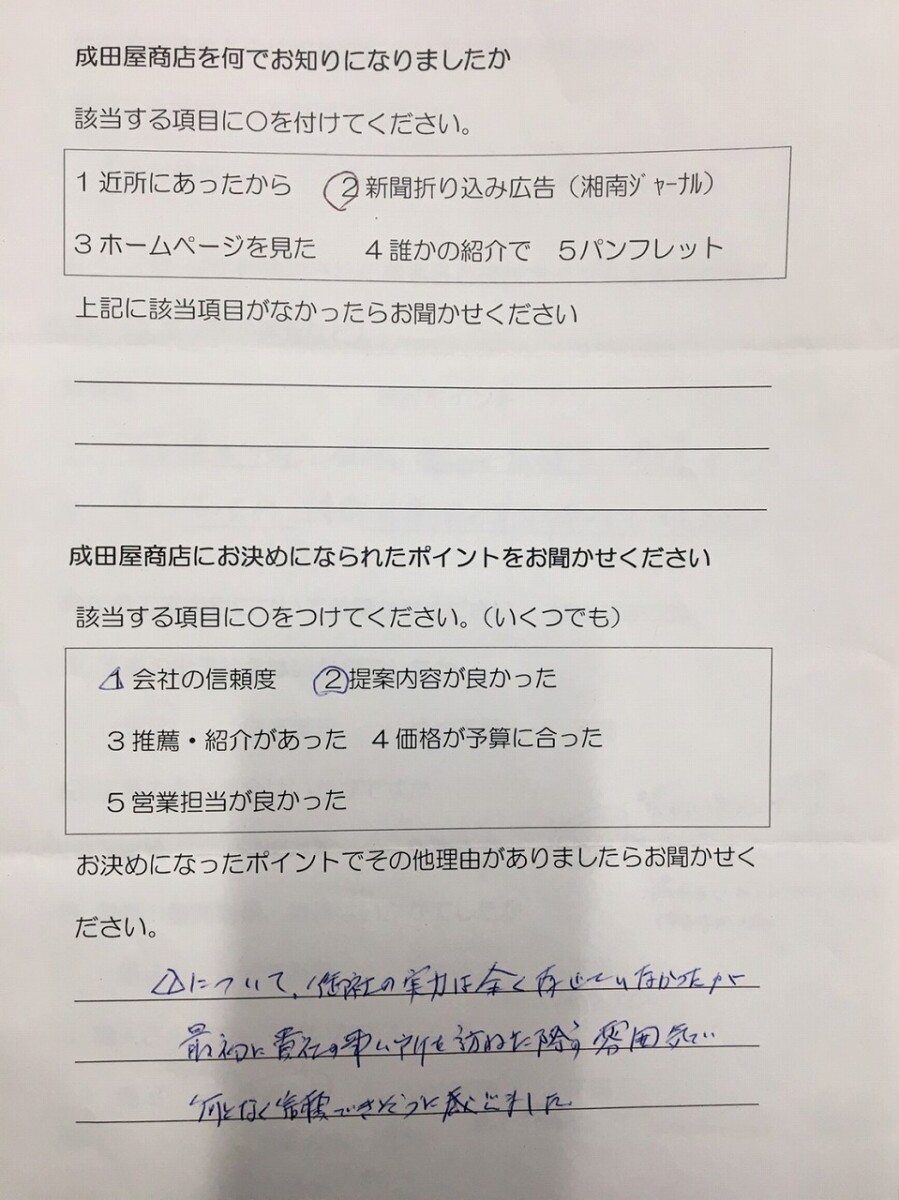 成田屋商店を何でお知りになりましたか
該当する項目に〇を付けてください。
1 近所にあったから ② 新聞折り込み広告（湘南ｼﾞｬｰﾅﾙ）
3 ホームページを見た 4 誰かの紹介で 5パンフレット
上記に該当項目がなかったらお聞かせください
成田屋商店にお決めになられたポイントをお聞かせください
該当する項目に〇をつけてください。（いくつでも）
1 会社の信頼度 ②提案内容が良かった
3 推薦・紹介があった 4 価格が予算に合った
5 営業担当が良かった
お決めになったポイントでその他理由がありましたらお聞かせく
ださい。
について、御社の実力は全く存じていなかったが
最初に貴社の 訪ねた際の雰囲気で
何となく信頼できそうに感じました。